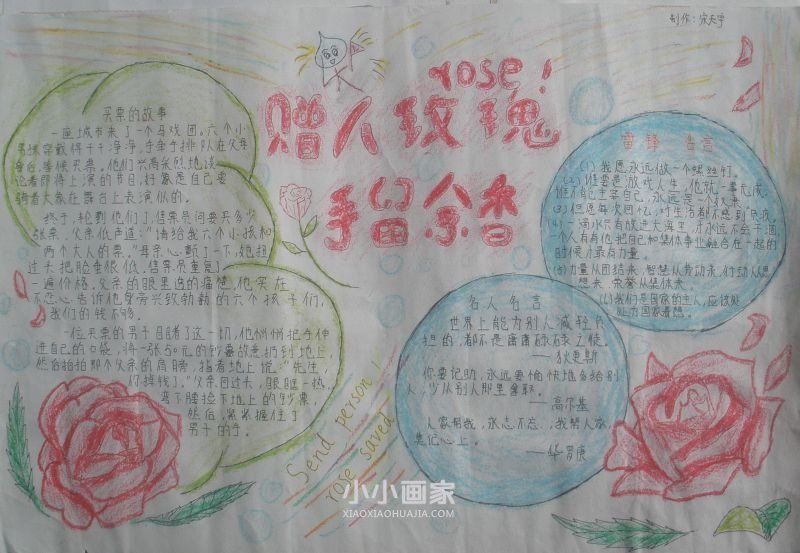 制作：宋天宇
rose!
赠人玫瑰
手留余香
买票的故事
一座城市来了一个马戏团。六个小
男孩穿戴得干干净净，手牵手排队在父母
身后，等候买票。他们兴高采烈地谈
论着即将上演的节目，好像是自己要
骑着大象在舞台上表演似的。
终于，轮到他们了，售票员问要买多少
张票，父亲低声道：“请给我六个小孩和
两个大人的票。”母亲心颤了一下，她扭
过头把脸垂得很低。售票员重复了
一遍价格。父亲的眼里透着痛楚，他实在
不忍心告诉他身旁兴致勃勃的六个孩子们，
我们的钱不够。
一位买票的男子目睹了这一切，他悄悄把手伸
进自己的口袋，将一张50元的钞票故意扔到地上，
然后拍拍那个父亲的肩膀，指着地上说：“先生，
你掉钱了。”父亲回过头，眼眶一热，
弯下腰捡下地上的钞票，
然后，紧紧握住了
男子的手。
雷锋名言
(1)我愿永远做一个螺丝钉。
(2)谁要是游戏人生，他就一事无成，
谁不能主宰自己，永远是一个奴隶。
(3)但愿每次回忆，对生活都不感到负疚。
(4)一滴水只有放进大海里，才永远不会干涸，
一个人有当他把自己和集体事业融合在一起的
时候才最有力量。
(5)力量从团结来，智慧从劳动来，行动从思
想来，荣誉从集体来。
(6)我们是国家的主人，应该处
处为国家着想。
名人名言
世界上能为别人减轻负
担的，都不是庸庸碌碌之徒。
——狄更斯
你要记明，永远要愉快地多给别
人，少从别人那里拿取。
——高尔基
人家帮我，永志不忘，我帮人家，
莫记心上。
——华罗庚
Send person,
rose saved
小小画家
XIAOXIAOHUAJIA.COM